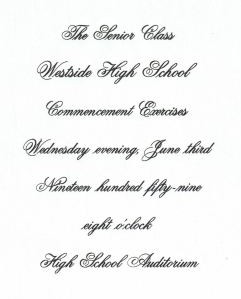 The Senior Class
Westside High School
Commencement Exercises
Wednesday evening, June third
Nineteen hundred fifty-nine
eight o'clock
High School Auditorium